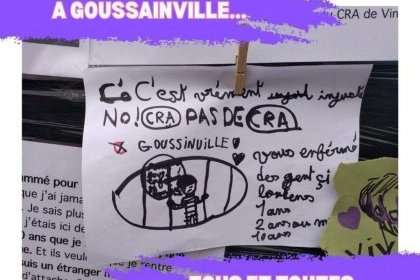 A GOUSSAINVILLE...
CRA de Vin
C'est vrément
NO! CRA PAS DE CRA
GOUSSINVILLE!
vous enfermé
des gent çi
lontens
1 ans
2 ans
10 ans
ammé pour
que j'ai jama
. Je sais plus
j'étais ici de
ans que je
e. Et ils veule
is un étranger
VIV
TOUS ET TOUTES